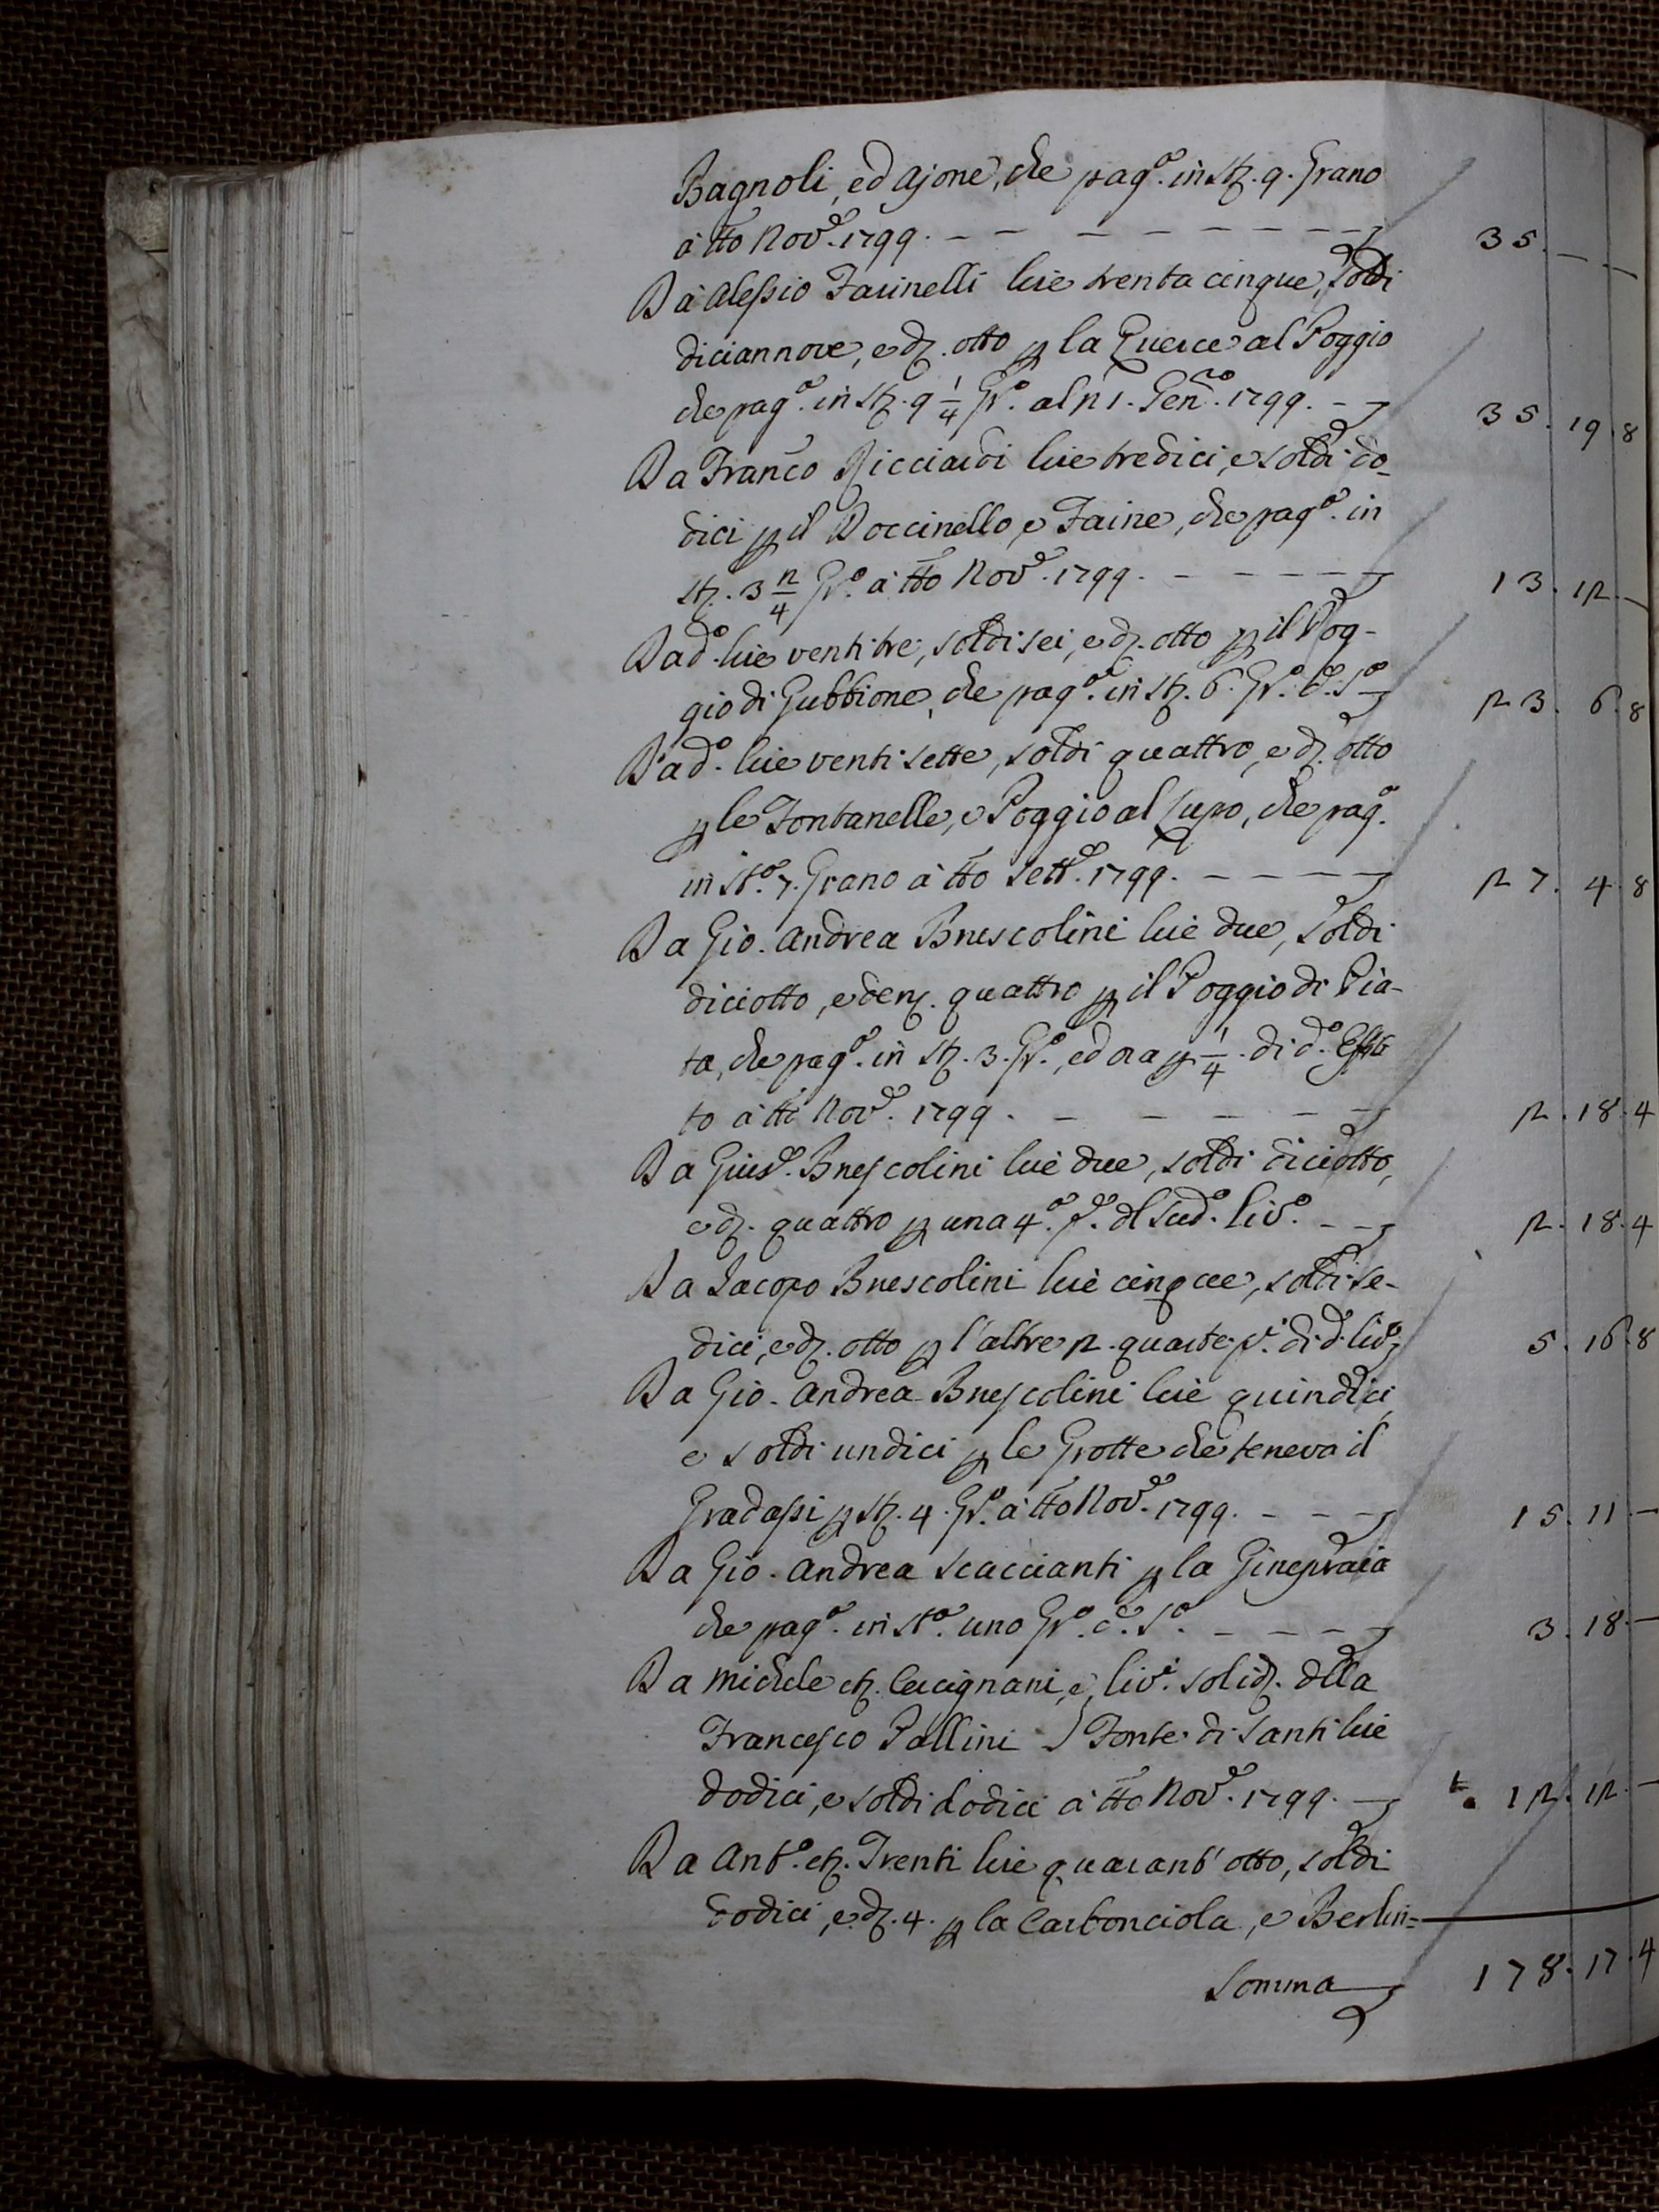 Bagnoli, ed Ajone, che pag.ª in stz. 9. Grano
à tto Nov.e 1799. — — — — — — — — 35. — —
Da Alessio Farinelli lire trenta cinque, soldi
diciannove, e dz. otto p la Querce al Poggio
che pag.ª in stz. 9 1/4 Gr.º al p.1. Genn.ro 1799. — — 35. 19. 8
Da Franco Ricciardi lire tredici, e soldi do-
dici p il Doccinello, e Faine, che pag.ª in
stz. 3 2/4 Gr.º à tto Nov.e 1799. — — — — — 13. 12. —
Da d.º lire ventitre, soldi sei, e dz. otto p il Pog-
gio di Gubbione, che pag.ª in stz. 6. Gr.º c.e S.ª 23. 6. 8
Da d.º lire venti sette, soldi quattro, e dz. otto
p le Fontanelle, e Poggio al Lupo, che pag.ª
in St.ª 7. Grano à tto Sett.e 1799. — — — — 27. 4. 8
Da Gio. Andrea Bruscolini lire due, soldi
diciotto, e denz. quattro p il Poggio di Pia-
ta, che pag.ª in stz. 3. Gr.º, ed ora p 1/4. di d.º Effet
to à tti Nov.e 1799. — — — — — 2. 18. 4
Da Gius.e Bruscolini lire due, soldi diciotto,
e dz. quattro p una 4.ª p.e dl sud.º liv.º — — 2. 18. 4
Da Jacopo Bruscolini lire cinque, soldi se-
dici, e dz. otto p l'altre 2. quarte p.i di d.º liv.º 5. 16. 8
Da Gio. Andrea Bruscolini lire quindici,
e soldi undici p le Grotte che teneva il
Gradassi p stz. 4. Gr.º à tto Nov.e 1799. — — — 15. 11. —
Da Gio. Andrea Scaccianti p la Ginepraia
che pag.ª in St.º uno Gr.º c.e S.ª — — — — 3. 18. —
Da Michele etz. Cecignani, e liv.i solidz. dlla
Francesco Pallini Fonte di Santi lire
dodici, e soldi dodici à tto Nov.e 1799. — 12. 12. —
Da Ant.º etz. Trenti lire quarant'otto, soldi
dodici, e dz. 4. p la Carbonciola, e Berlin=
Somma 178. 17. 4